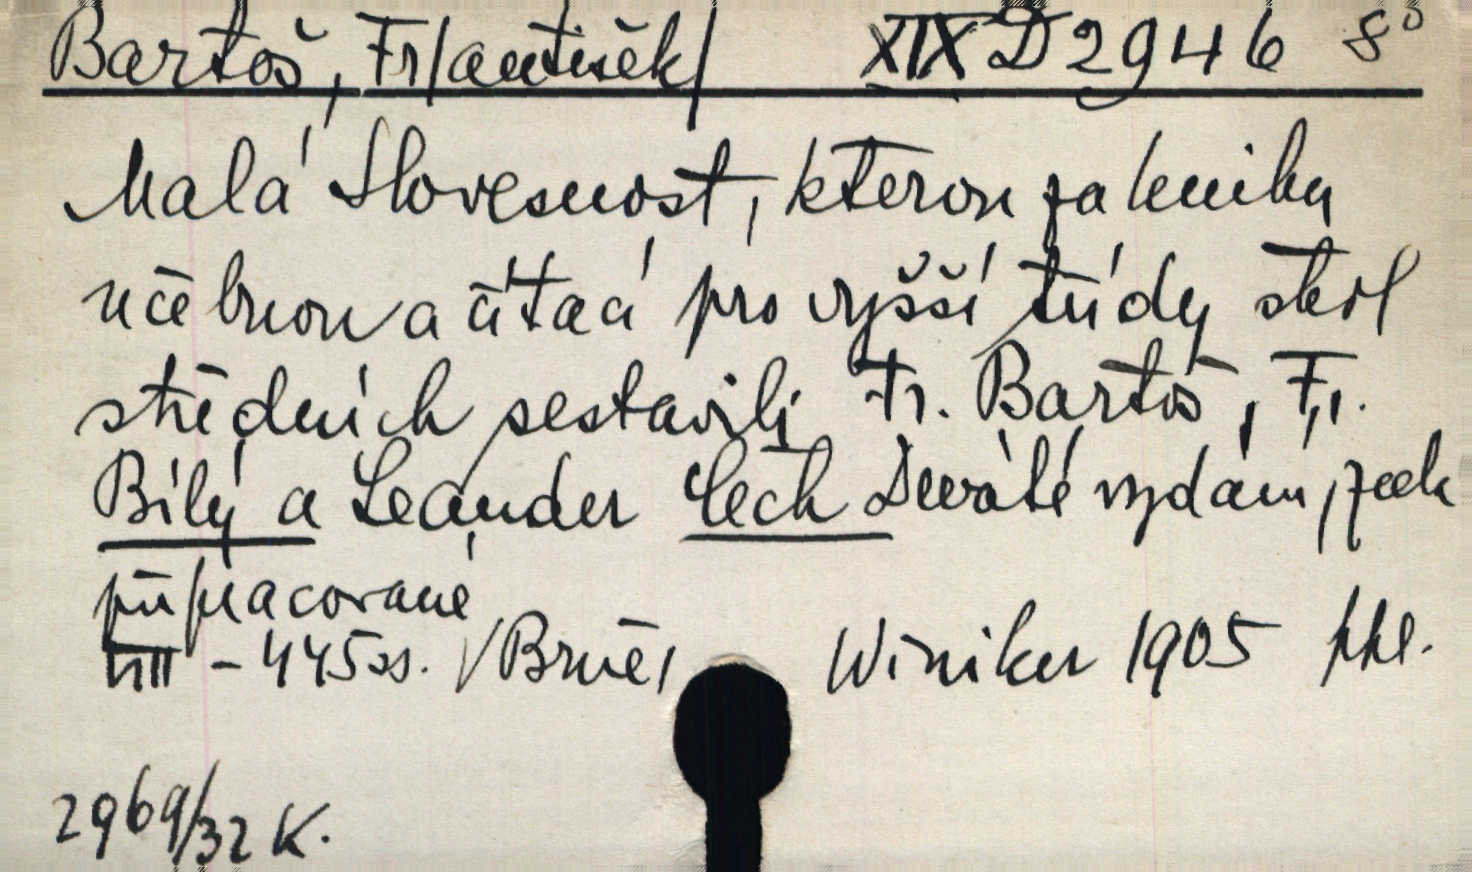 Bartoš, Fr/antišek/ XIX D 2946 8°
Malá Slovesnost, kterou za knihu
učebnou a čítací pro vyšší třídy škol
středních sestavili Fr. Bartoš, Fr.
Bílý a Leander Čech Deváté vydání, zcela
přepracované
VIII - 445 ss. V Brně, Winiker 1905 ppl.
2969/32 K.